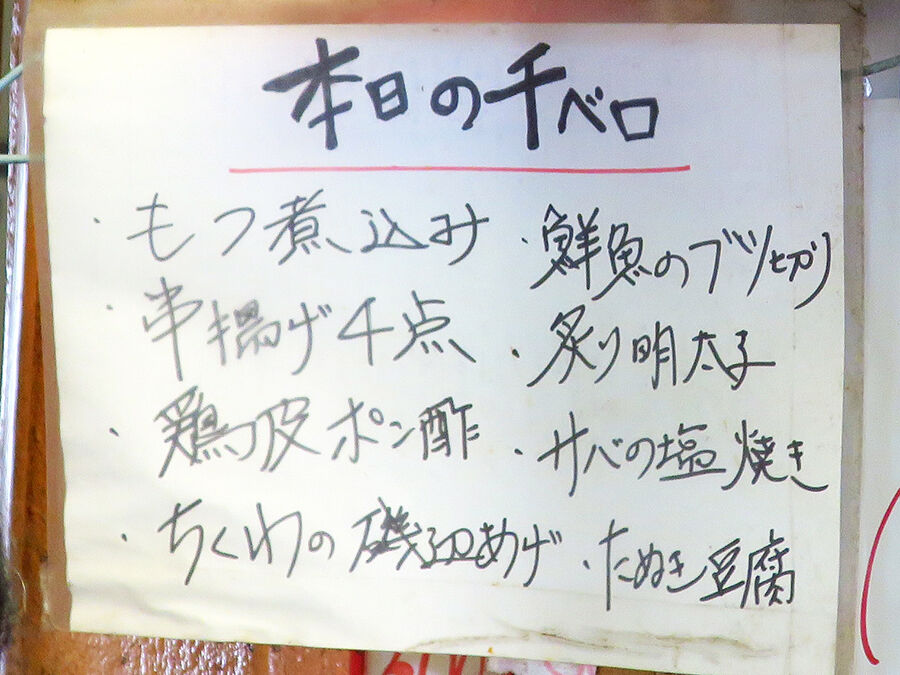 本日の千ベロ
・もつ煮込み
・串揚げ4点
・鶏皮ポン酢
・ちくわの磯辺あげ
・鮮魚のブツ切り
・炙り明太子
・サバの塩焼き
・たぬき豆腐